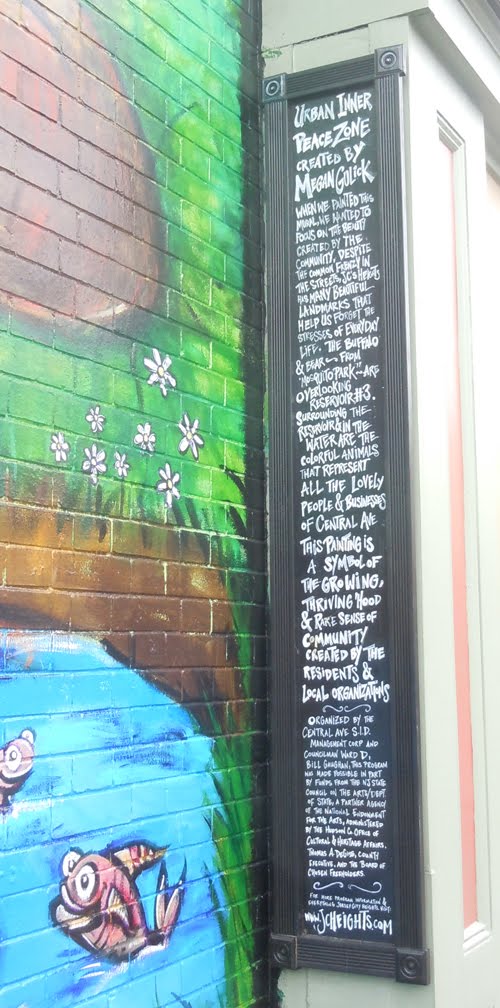 URBAN INNER
PEACE ZONE
CREATED BY
MEGAN GOLICK
WHEN WE PAINTED THIS
MURAL, WE WANTED TO
FOCUS ON THE BEAUTY
CREATED BY THE
COMMUNITY. DESPITE
THE COMMON FRENZY IN
THE STREETS, JC'S HEIGHTS
HAS MANY BEAUTIFUL
LANDMARKS THAT
HELP US FORGET THE
STRESSES OF EVERYDAY
LIFE. THE BUFFALO
& BEAR ~ FROM
"MOSQUITO PARK" ~ ARE
OVERLOOKING
RESERVOIR #3.
SURROUNDING THE
RESERVOIR & IN THE
WATER ARE THE
COLORFUL ANIMALS
THAT REPRESENT
ALL THE LOVELY
PEOPLE & BUSINESSES
OF CENTRAL AVE
THIS PAINTING IS
A SYMBOL OF
THE GROWING,
THRIVING 'HOOD
& RARE SENSE OF
COMMUNITY
CREATED BY THE
RESIDENTS &
LOCAL ORGANIZATIONS
ORGANIZED BY THE
CENTRAL AVE S.I.D.
MANAGEMENT CORP AND
COUNCILMAN WARD D,
BILL GAUGHAN, THIS PROGRAM
WAS MADE POSSIBLE IN PART
BY FUNDS FROM THE NJ STATE
COUNCIL ON THE ARTS/DEPT.
OF STATE, A PARTNER AGENCY
OF THE NATIONAL ENDOWMENT
FOR THE ARTS, ADMINISTERED
BY THE HUDSON C. OFFICE OF
CULTURAL & HERITAGE AFFAIRS,
THOMAS A. DEGISE, COUNTY
EXECUTIVE, AND THE BOARD OF
CHOSEN FREEHOLDERS.
FOR MORE PROGRAM INFORMATION &
EVERYTHING JERSEY CITY HEIGHTS, VISIT
WWW.JCHEIGHTS.COM